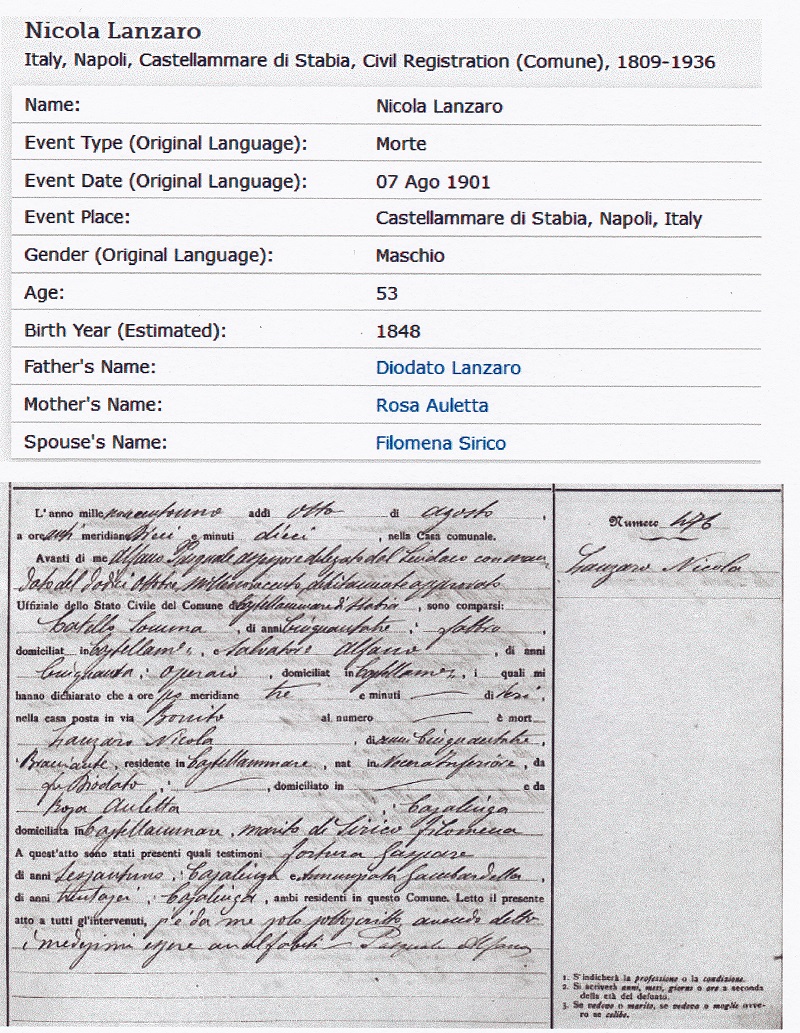 Nicola Lanzaro
Italy, Napoli, Castellammare di Stabia, Civil Registration (Comune), 1809-1936
Name: Nicola Lanzaro
Event Type (Original Language): Morte
Event Date (Original Language): 07 Ago 1901
Event Place: Castellammare di Stabia, Napoli, Italy
Gender (Original Language): Maschio
Age: 53
Birth Year (Estimated): 1848
Father's Name: Diodato Lanzaro
Mother's Name: Rosa Auletta
Spouse's Name: Filomena Sirico
L'anno millenovecentouno addì otto di agosto,
a ore anti meridiane dieci e minuti dieci, nella Casa comunale.
Avanti di me Alfano Pasquale assessore delegato dal Sindaco con man
dato del dodici Ottobre millenovecento, debitamente approvato
Uffiziale dello Stato Civile del Comune di Castellammare di Stabia, sono comparsi:
Catello Somma, di anni cinquantatre,
domiciliat in Castellamre, e Salvatore Alfano, di anni
cinquanta, operaio, domiciliat in Castellamre, i quali mi
hanno dichiarato che a ore po meridiane tre e minuti — di ieri,
nella casa posta in via Bonito al numero — è mort
Lanzaro Nicola, di anni cinquantatre,
Bracciante, residente in Castellammare, nat in Nocera Inferiore, da
fu Diodato, —, domiciliato in — e da
Rosa Auletta, Casalinga
domiciliata in Castellammare, marito di Sirico Filomena
A quest'atto sono stati presenti quali testimoni Gaspare
di anni sessantuno, Casalinga e Annunziata Gambardella,
di anni trentasei, Casalinga, ambi residenti in questo Comune. Letto il presente
atto a tutti gl'intervenuti, s'è da me solo sottoscritto avendo detto
i medesimi essere analfabeti Pasquale Alfano
Numero 476
Lanzaro Nicola
1. S'indicherà la professione o la condizione.
2. Si scriverà anni, mesi, giorni o ore a seconda
della età del defunto.
3. Se vedovo o marito, se vedova o moglie ovve-
ro se celibe.